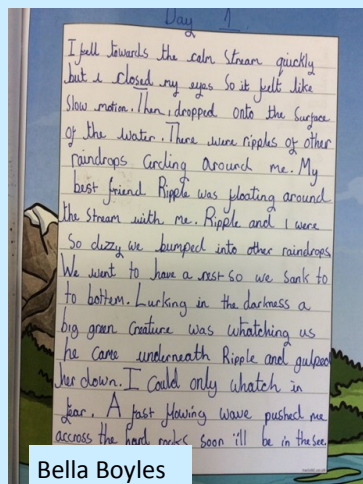 Day 1
I fell towards the calm stream quickly
but i closed my eyes so it felt like
slow motion. Then i dropped onto the surface
of the water. There were ripples of other
raindrops circling around me. My
best friend Ripple was floating around
the stream with me. Ripple and I were
so dizzy we bumped into other raindrops
We went to have a rest so we sank to
to bottem. Lurking in the darkness a
big green creature was whatching us
he came underneath Ripple and gulped
her down. I could only whatch in
fear. A fast flowing wave pushed me
accross the hard rocks soon i'll be in the see.
Bella Boyles